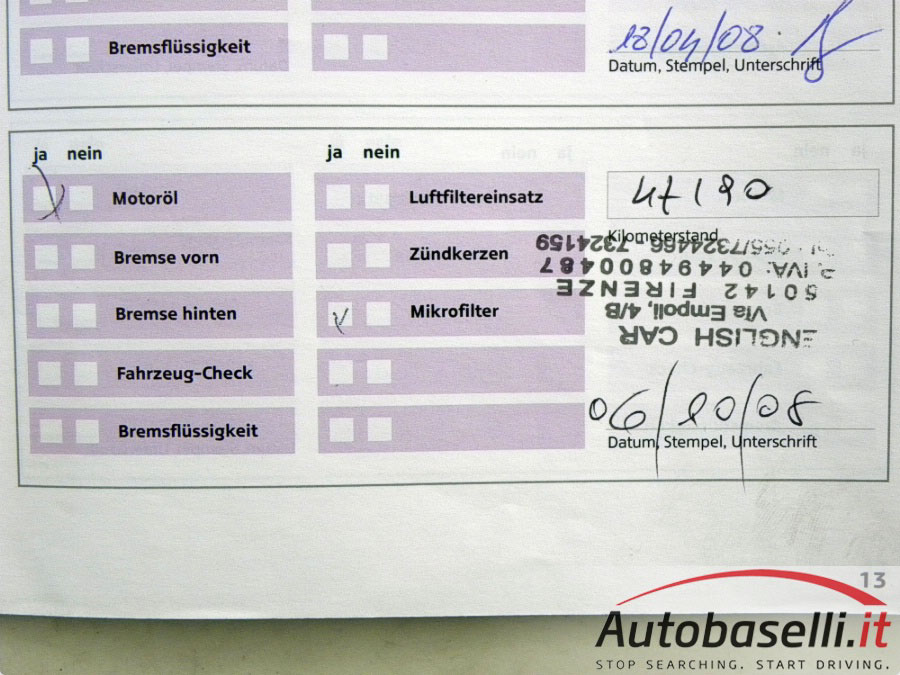 Bremsflüssigkeit
18/04/08.
Datum, Stempel, Unterschrift
ja nein
ja nein
Motoröl
Luftfiltereinsatz
47190
Kilometerstand
Bremse vorn
Zündkerzen
Bremse hinten
Mikrofilter
Fahrzeug-Check
Bremsflüssigkeit
ENGLISH CAR
Via Empoli, 4/B
50142 FIRENZE
P. IVA: 04494800487
055/7324466 - 7324159
06/10/08
Datum, Stempel, Unterschrift
13
Autobaselli.it
STOP SEARCHING. START DRIVING.